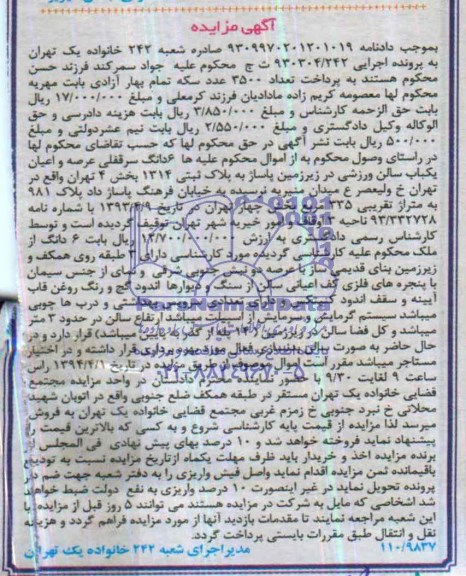 آگهی مزایده
بموجب دادنامه ۹۳۰۹۹۷۰۲۰۱۲۰۱۰۱۹ صادره شعبه ۲۴۲ خانواده یک تهران
به پرونده اجرایی ۹۳۰۳۰۴/۲۴۲ ت ج محکوم علیه جواد سمرکند فرزند حسن
محکوم هستند به پرداخت تعداد ۳۵۰۰ عدد سکه تمام بهار آزادی بابت مهریه
محکوم لها معصومه کریم زاده مادادیان فرزند کرمعلی و مبلغ ۱۷/۰۰۰/۰۰۰ ریال
بابت حق الزحمه کارشناس و مبلغ ۳/۸۵۰/۰۰۰ ریال بابت هزینه دادرسی و حق
الوکاله وکیل دادگستری و مبلغ ۲/۵۵۰/۰۰۰ ریال بابت نیم عشردولتی و مبلغ
۵۰۰/۰۰۰ ریال بابت نشر آگهی در حق محکوم لها که حسب تقاضای محکوم لها
در راستای وصول محکوم به از اموال محکوم علیه ها ۶دانگ سرقفلی عرصه و اعیان
یکباب سالن ورزشی در زیرزمین پاساژ به پلاک ثبتی ۱۳۱۴ بخش ۴ تهران واقع در
تهران خ ولیعصر ع میدان منیریه نرسیده به خیابان فرهنگ پاساژ داد پلاک ۹۸۱
به متراژ تقریبی ۳۳۵ بخش چهار تهران در تاریخ ۱۳۹۳/۴/۹ با شماره نامه
۹۳/۳۳۲۷۲۸ ناحیه اوقاف و امور خیریه شهر تهران توقیف گردیده است و توسط
کارشناس رسمی دادگستری به ارزش ریال بابت ۶ دانگ از
ملک محکوم علیه کارشناسی گردیده مورد کارشناسی دارای ۳ طبقه روی همکف و
زیرزمین بنای قدیمی ساز با عرصه دو نبش جنوبی شرقی و نمای از جنس سیمان
با پنجره های فلزی کف اعیانی سالن از سنگ و دیوارها اندود گچ و رنگ روغن قاب
آیینه و سقف اندود گچ دارای تعدادی سرویس بهداشتی و درب ها چوبی
میباشد سیستم گرمایش و سرمایش از اسپلیت میباشد ارتفاع سالن در حدود ۳ متر
میباشد و کل فضا سالن در زیرزمین (۱۹ پله از کف به پایین میباشد) قرار دارد و در
حال حاضر به صورت سالن بدنسازی فعال مورد بهره برداری قرار داشته و در اختیار
مستاجر میباشد مقرر است اموال موصوف از طریق مزایده در تاریخ ۱۳۹۴/۴/۱ راس
ساعت ۹ لغایت ۹/۳۰ با حضور نماینده دادستان در واحد مزایده مجتمع
قضایی خانواده یک تهران مستقر در طبقه همکف ضلع جنوبی واقع در اتوبان شهید
محلاتی خ نبرد جنوبی خ زمزم غربی مجتمع قضایی خانواده یک تهران به فروش
میرسد لذا مزایده از قیمت پایه کارشناسی شروع و به کسی که بالاترین قیمت را
پیشنهاد نماید فروخته خواهد شد و ۱۰ درصد بهای پیش نهادی فی المجلس از
برنده مزایده اخذ و خریدار باید ظرف مهلت یکماه ازتاریخ مزایده نسبت به تودیع
باقیمانده ثمن مزایده اقدام نماید واصل فیش واریزی را به دفتر شعبه جهت ضم در
پرونده تحویل نماید در غیر اینصورت ۱۰ درصد واریزی به نفع دولت ضبط خواهد
شد اشخاصی که مایل به شرکت در مزایده هستند می توانند ۵ روز قبل از مزایده با
این شعبه مراجعه نمایند تا مقدمات بازدید آنها از مورد مزایده فراهم گردد و هزینه
نقل و انتقال طبق مقررات بایستی پرداخت گردد.
۱۱۰/۹۸۳۷ مدیراجرای شعبه ۲۴۲ خانواده یک تهران